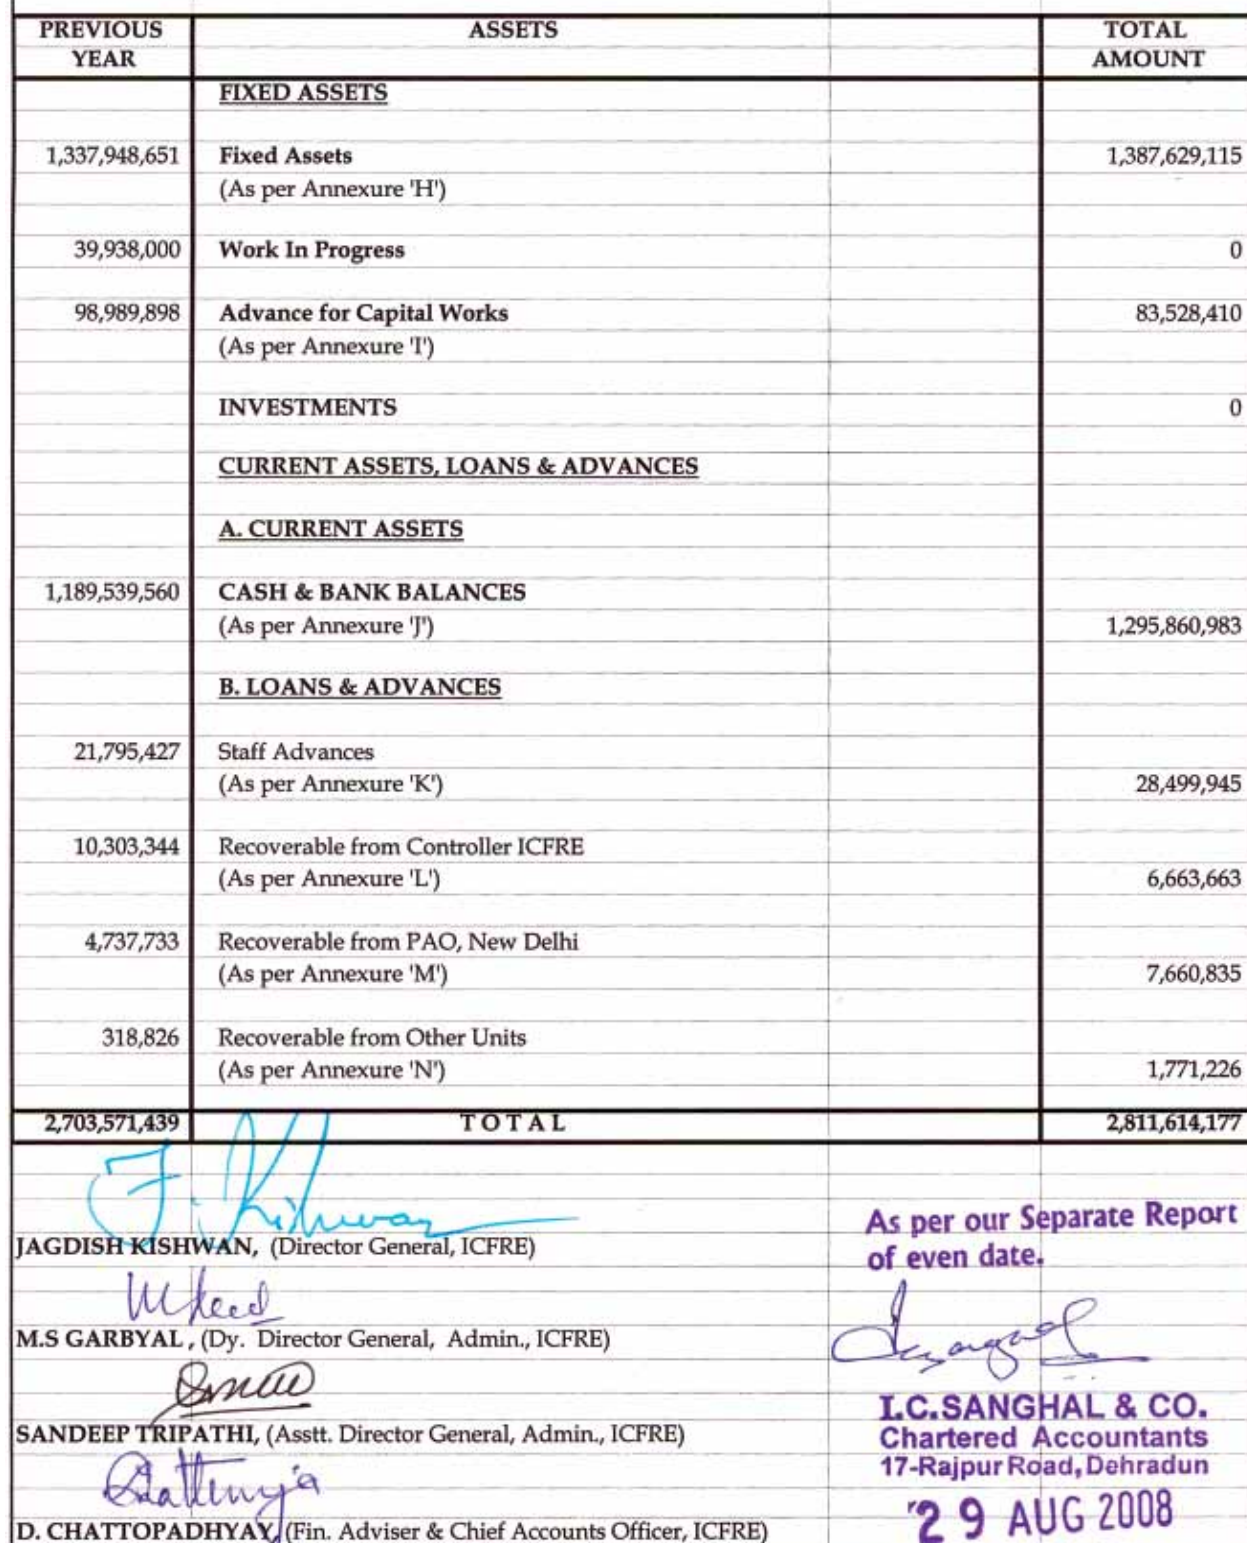 PREVIOUS YEAR ASSETS TOTAL AMOUNT
FIXED ASSETS
1,337,948,651 Fixed Assets 1,387,629,115
(As per Annexure 'H')
39,938,000 Work In Progress 0
98,989,898 Advance for Capital Works 83,528,410
(As per Annexure 'I')
INVESTMENTS 0
CURRENT ASSETS, LOANS & ADVANCES
A. CURRENT ASSETS
1,189,539,560 CASH & BANK BALANCES
(As per Annexure 'J') 1,295,860,983
B. LOANS & ADVANCES
21,795,427 Staff Advances
(As per Annexure 'K') 28,499,945
10,303,344 Recoverable from Controller ICFRE
(As per Annexure 'L') 6,663,663
4,737,733 Recoverable from PAO, New Delhi
(As per Annexure 'M') 7,660,835
318,826 Recoverable from Other Units
(As per Annexure 'N') 1,771,226
2,703,571,439 TOTAL 2,811,614,177
J. Kishwan
JAGDISH KISHWAN, (Director General, ICFRE)
M.S GARBYAL, (Dy. Director General, Admin., ICFRE)
SANDEEP TRIPATHI, (Asstt. Director General, Admin., ICFRE)
D. CHATTOPADHYAY, (Fin. Adviser & Chief Accounts Officer, ICFRE)
As per our Separate Report
of even date.
I.C.SANGHAL & CO.
Chartered Accountants
17-Rajpur Road, Dehradun
29 AUG 2008